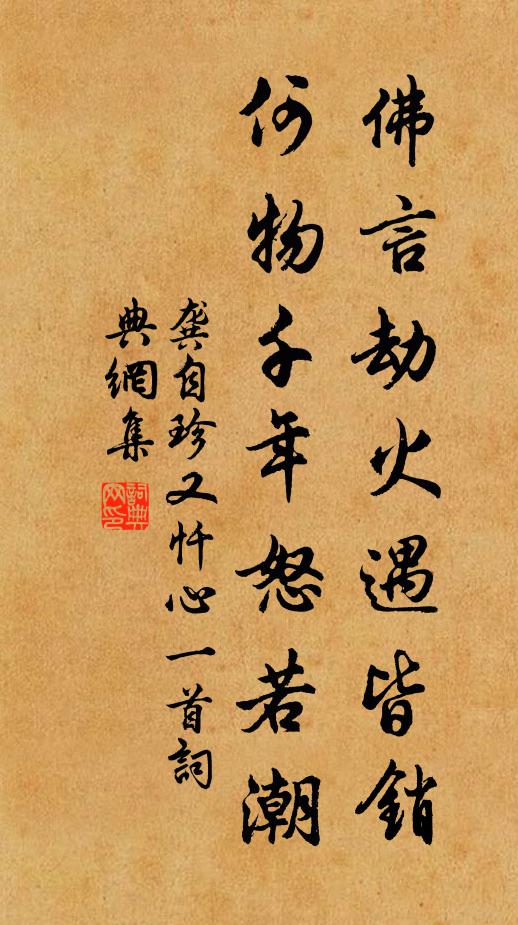 佛言劫火遇皆銷
何物千年怒若潮
龔自珍又忏心一首詞
典網集
詞典
网印